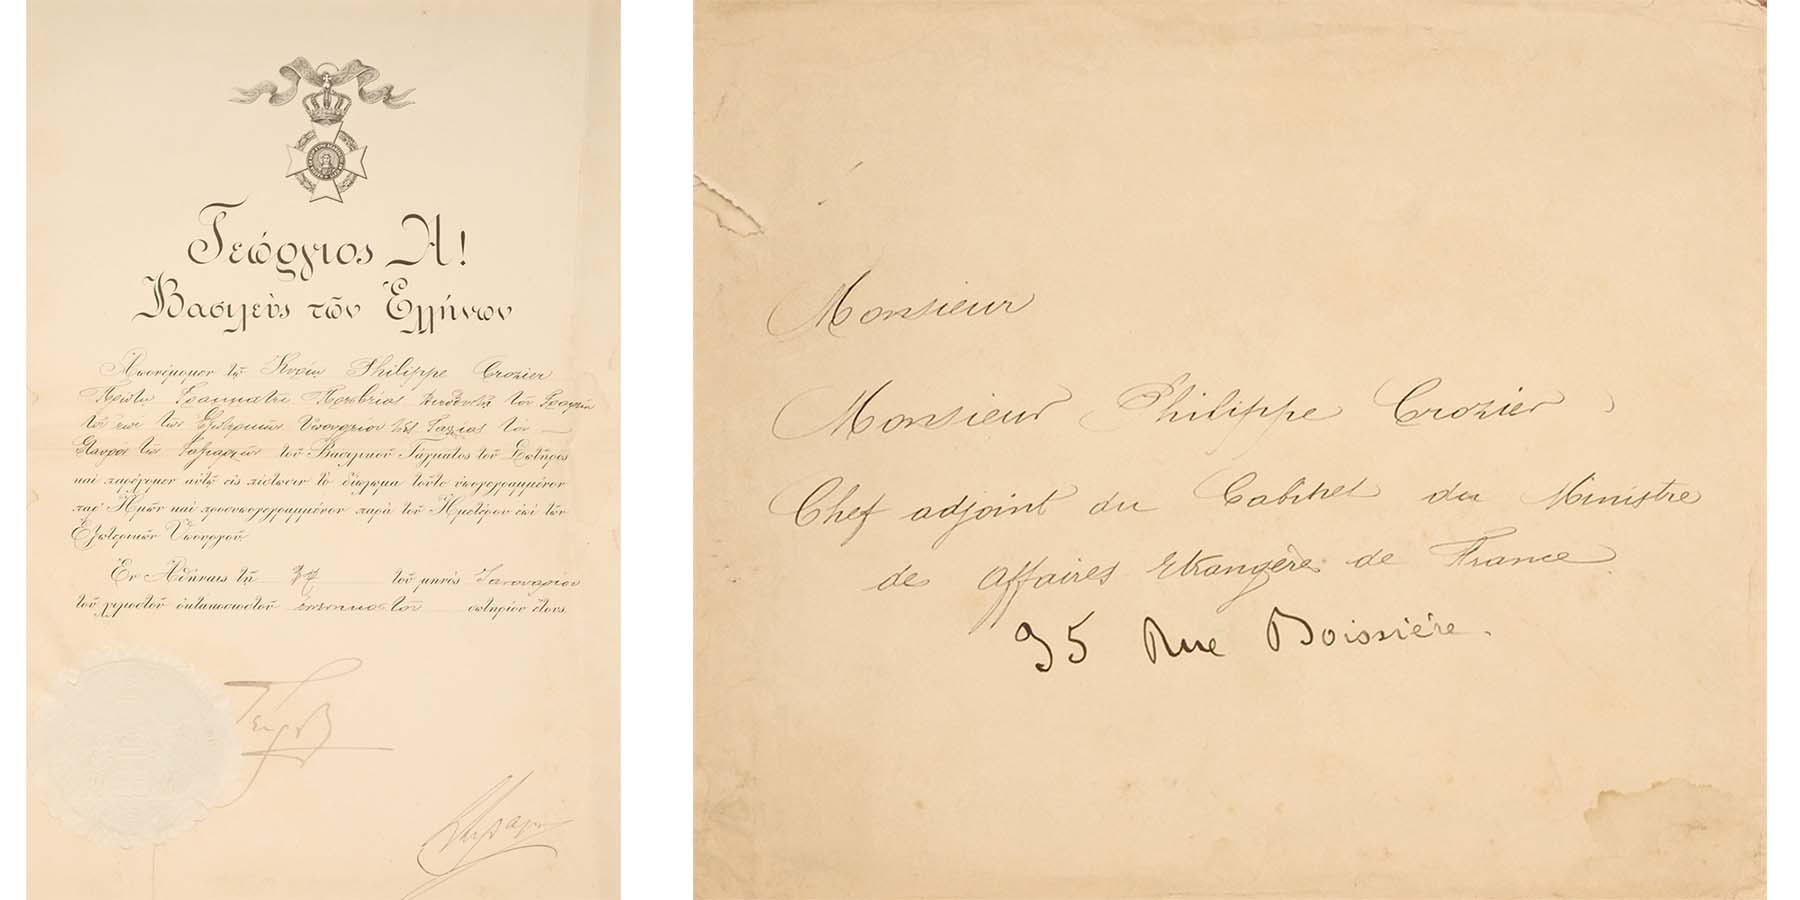 Γεώργιος Α!
Βασιλεὺς τῶν Ἑλλήνων
Ἀπονέμομεν τῷ Κυρίῳ Philippe Crozier
Πρώτῳ Γραμματεῖ Πρεσβείας Διευθυντῇ τοῦ Γραφείου
τοῦ ἐπὶ τῶν Ἐξωτερικῶν Ὑπουργείου τῆς Γαλλίας τὸν
Σταυρὸν τῶν Ταξιαρχῶν τοῦ Βασιλικοῦ Τάγματος τοῦ Σωτῆρος
καὶ παρέχομεν αὐτῷ εἰς πίστωσιν τὸ δίπλωμα τοῦτο ὑπογεγραμμένον
παρ' Ἡμῶν καὶ προσυπογεγραμμένον παρὰ τοῦ Ἡμετέρου ἐπὶ τῶν
Ἐξωτερικῶν Ὑπουργοῦ.
Ἐν Ἀθήναις τῇ τοῦ μηνὸς Ἰανουαρίου
τοῦ χιλιοστοῦ ὀκτακοσιοστοῦ ἐνενηκοστοῦ σωτηρίου ἔτους.
Monsieur
Monsieur Philippe Crozier
Chef adjoint du Cabinet du Ministre
de Affaires Etrangères de France
95 Rue Boissière.